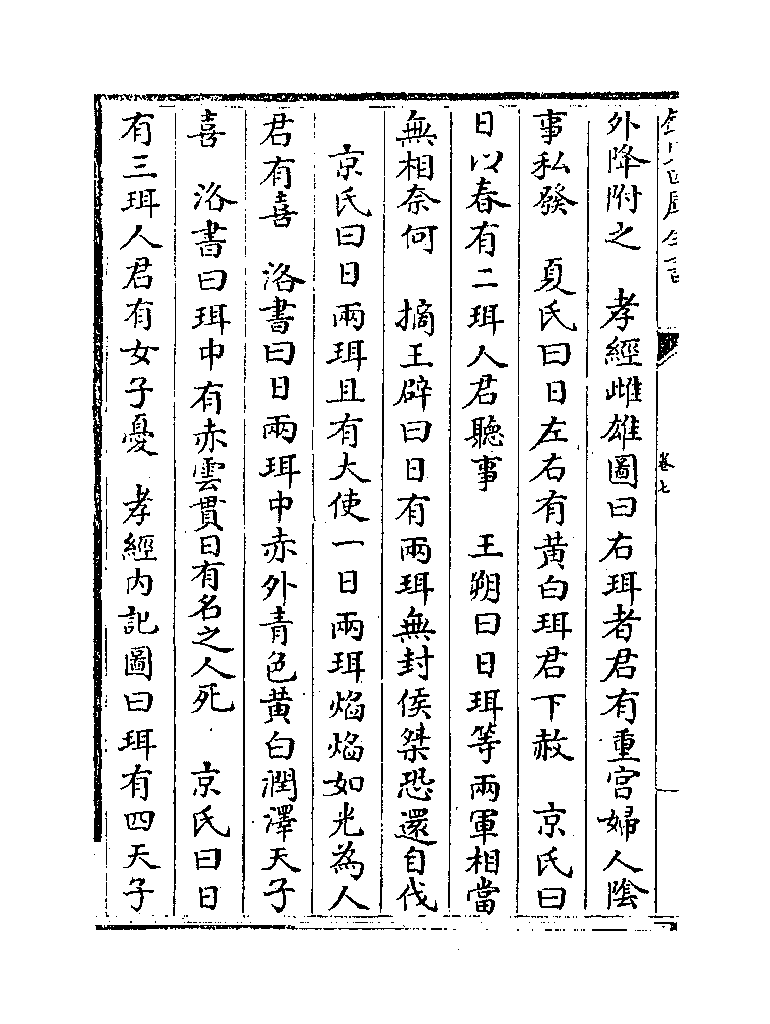 外降附之　孝經雌雄圖曰右珥者君有重宫婦人隂
事私發　夏氏曰日左右有黄白珥君下赦　京氏曰
日以春有二珥人君聽事　王朔曰日珥等兩軍相當
無相奈何　摘王辟曰日有兩珥無封侯桀恐還自伐
京氏曰日兩珥且有大使一日兩珥焰焰如光為人
君有喜　洛書曰日兩珥中赤外青色黄白潤澤天子
喜　洛書曰珥中有赤雲貫日有名之人死　京氏曰日
有三珥人君有女子憂　孝經内記圖曰珥有四天子
卷七